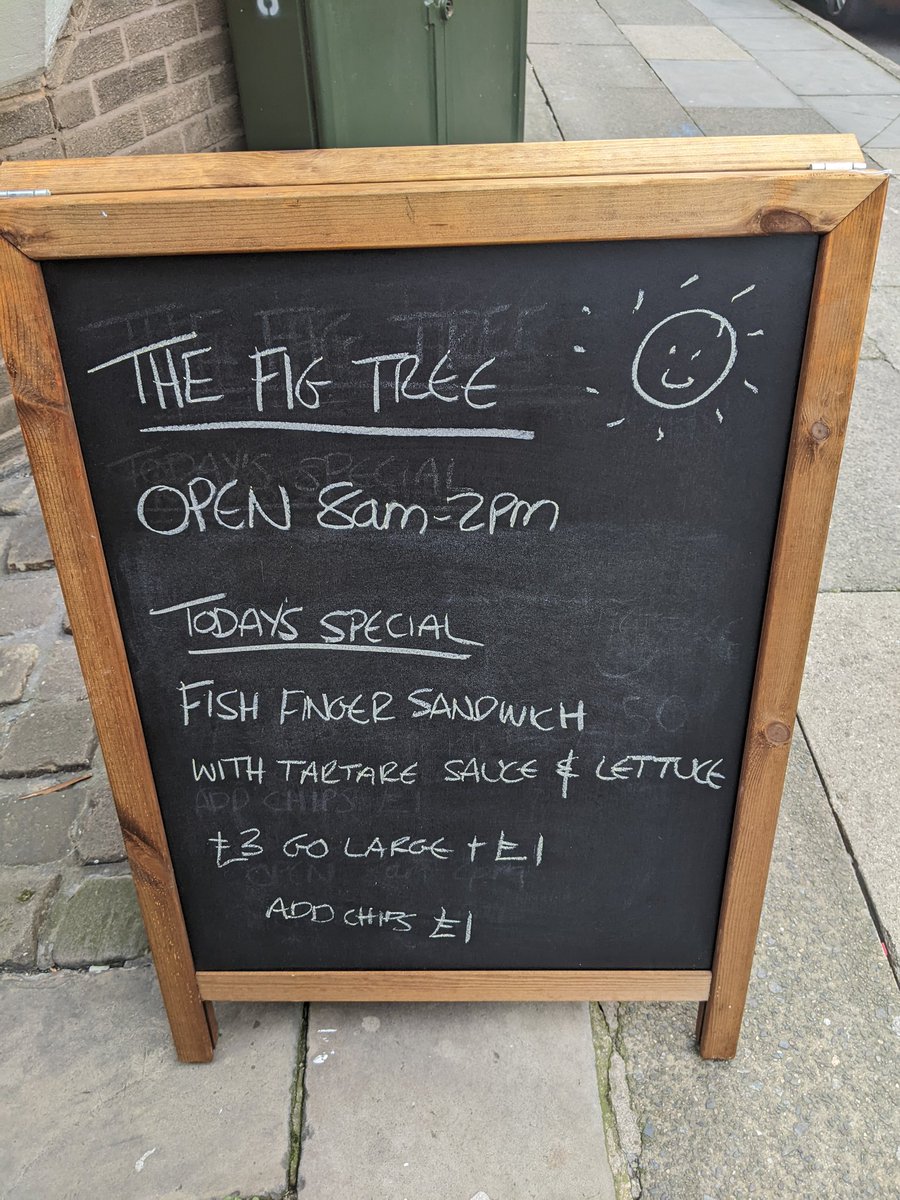 THE FIG TREE
OPEN 8am-2pm
TODAY'S SPECIAL
FISH FINGER SANDWICH
WITH TARTARE SAUCE & LETTUCE
£3 GO LARGE + £1
ADD CHIPS £1